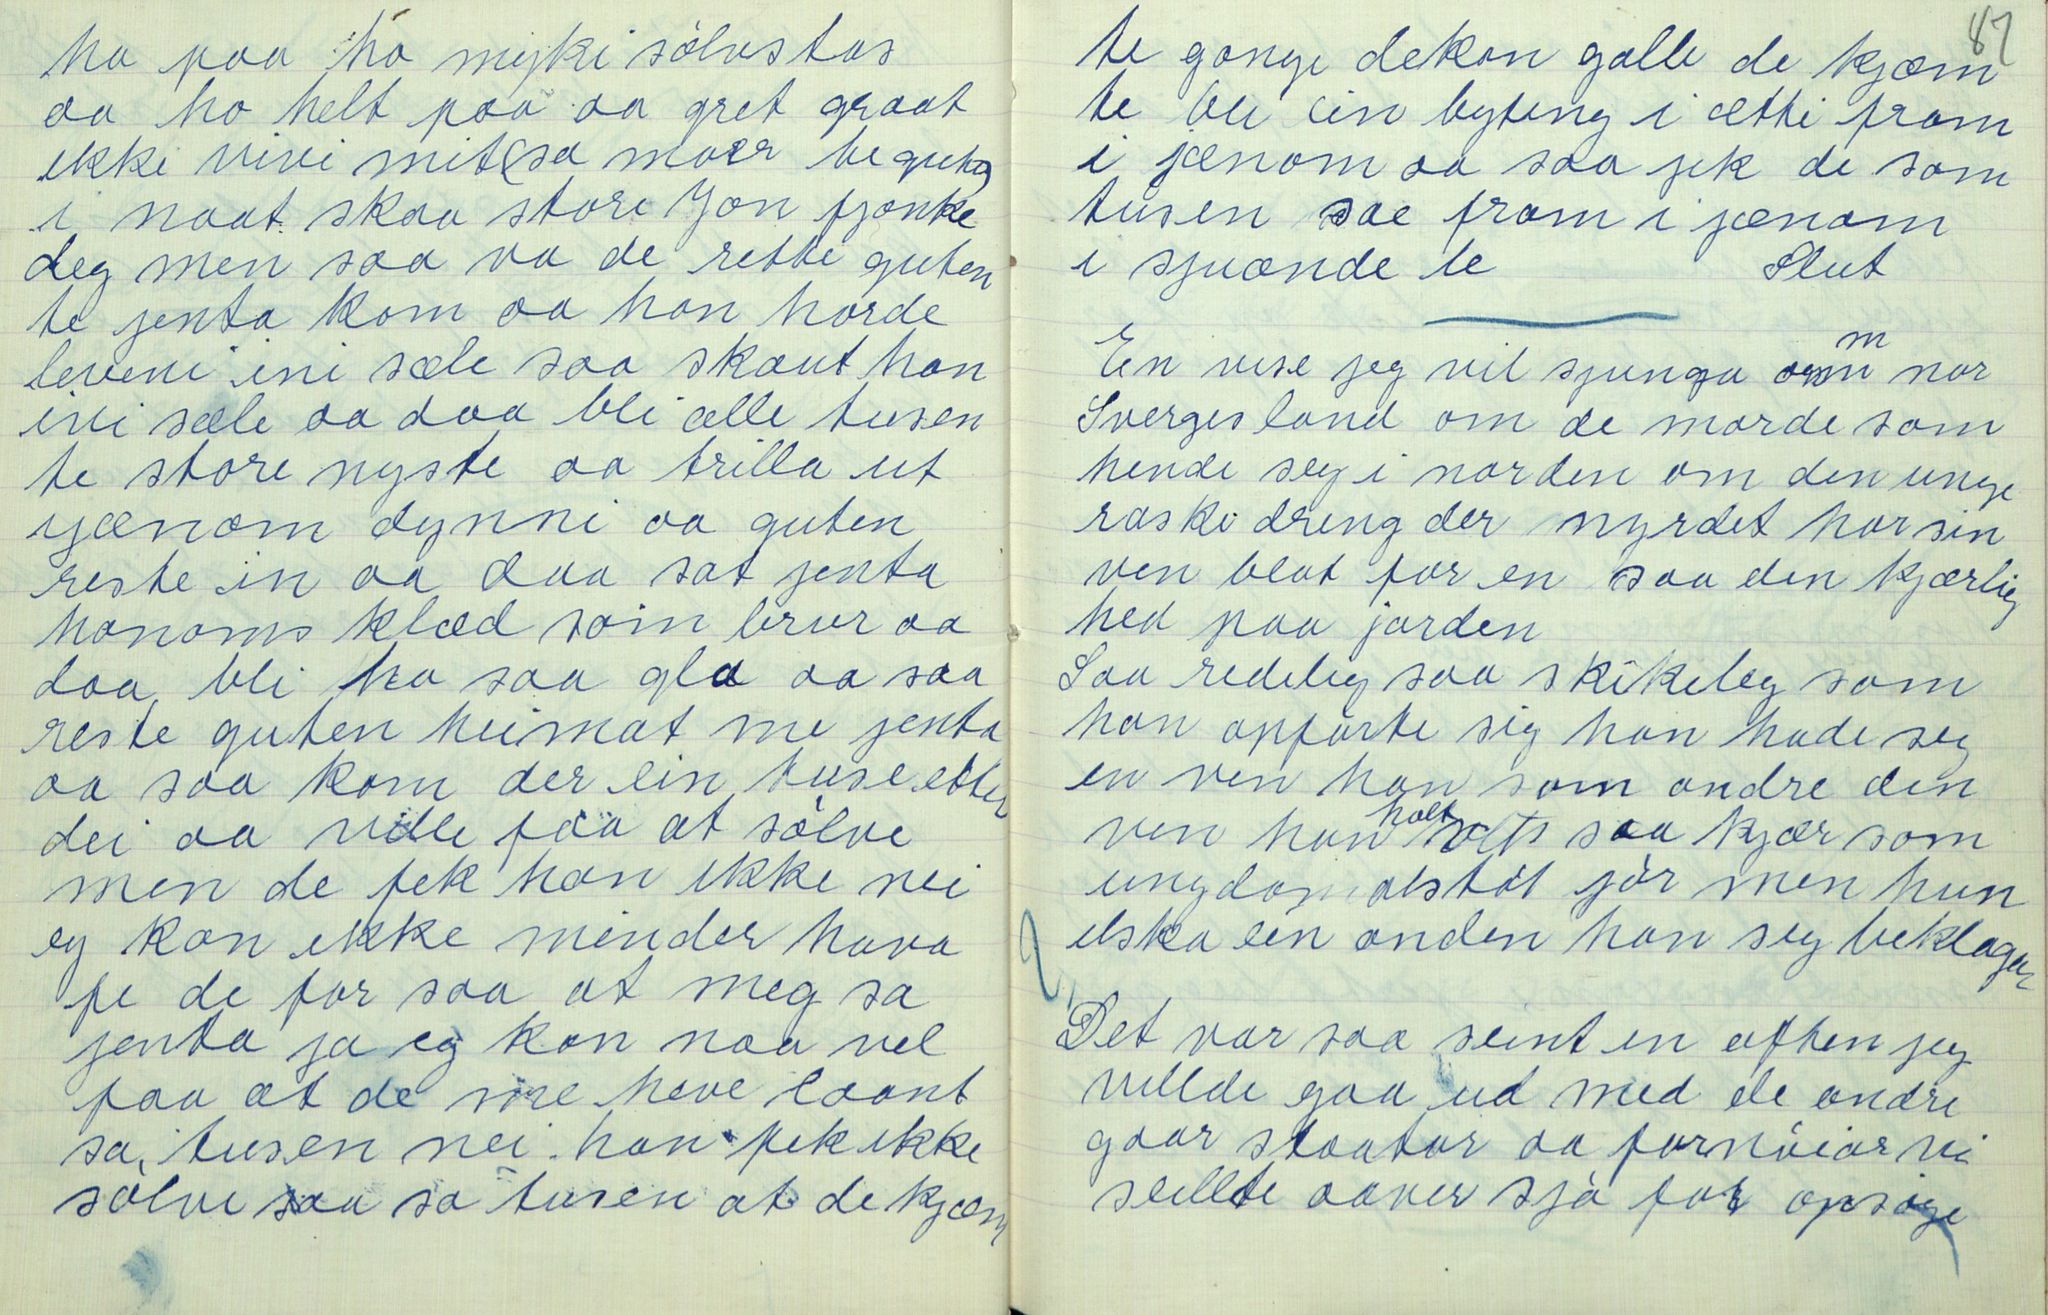 ho paa ho myki sölvstas
aa ho helt paa aa gret graat
ikki vivi mit (sa moer te guten)
i naat skaa store Jon fjonke
deg men saa va de rette guten
te jenta kom aa han horde
leveni ini sæle saa skaut han
ini sæle aa daa bli alle tusen
te store nyste aa trilla ut
ijænom dynni aa guten
reste in aa daa sat jenta
honoms klæd som brur aa
daa bli ho saa gla aa saa
reste guten heimat me jenta
aa saa kom der ein tuse etter
dei aa ville faa at sölve
men de fek han ikke nei
eg kan ikke minder hava
fe de for saa at meg sa
jenta ja eg kan naa vel
faa at de me heve laant
sa tusen nei han fek ikke
sölve saa sa tusen at de kjæm
87
te gonge dekan galle de kjæm
te bli ein byting i ætti fram
i jænom aa saa jek de som
tusen sae fram i jænom
i sjuænde le Slut
En vise jeg vil sjunga om nor
Sverges land om de morde som
hende seg i norden om den unge
raske dreng der myrdet har sin
ven blot for en saa den kjærlig
hed paa jorden
Saa redelig saa skikeleg som
han opförte sig han hade seg
en ven han som andre den
ven han holt saa kjær som
ungdom alstöt jör men hun
elska ein anden han seg beklager
Det var saa seint en afthen jeg
villde gaa ud med de andre
gaar staatar aa fornöiar vi
seillte aaver sjö for opsöge